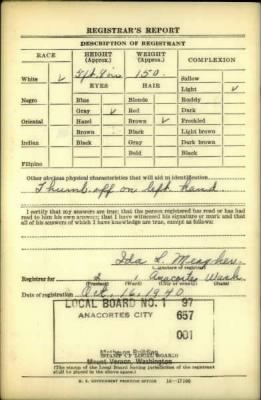 REGISTRAR'S REPORT
DESCRIPTION OF REGISTRANT
RACE HEIGHT (Approx.) WEIGHT (Approx.) COMPLEXION
White ✓ 5 ft 9 ins 150 Sallow
EYES HAIR Light ✓
Negro Blue Blonde Ruddy
Gray ✓ Red Dark
Oriental Hazel Brown ✓ Freckled
Brown Black Light brown
Indian Black Gray Dark brown
Bald Black
Filipino
Other obvious physical characteristics that will aid in identification
Thumb off on left hand.
I certify that my answers are true; that the person registered has read or has had
read to him his own answers; that I have witnessed his signature or mark and that
all of his answers of which I have knowledge are true, except as follows:
Ida L. Meagher
(Signature of registrar)
Registrar for 2 1 Anacortes Wash.
(Precinct) (Ward) (City or county) (State)
Date of registration Oct. 16 - 1940
LOCAL BOARD NO. 1 97
ANACORTES CITY 057
001
Building
(STAMP OF LOCAL BOARD)
Mount Vernon, Washington
(The stamp of the Local Board having jurisdiction of the registrant
shall be placed in the above space.)
U. S. GOVERNMENT PRINTING OFFICE 16-17105